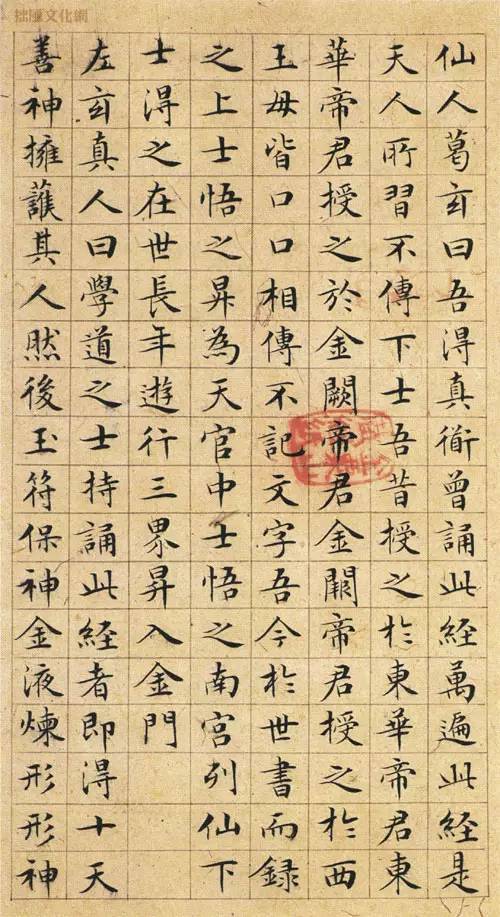 拙風文化網
仙人葛玄曰吾淂真衟曾誦此經萬遍此經是
天人所習不傳下士吾昔授之扵東華帝君東
華帝君授之於金闕帝君金闕帝君授之扵西
王母皆口口相傳不記文字吾今扵世書而録
之上士悟之昇為天官中士悟之南宮列仙下
士淂之在世長年遊行三界昇入金門
左玄真人曰學道之士持誦此經者即淂十天
善神擁護其人然後玉符保神金液煉形形神